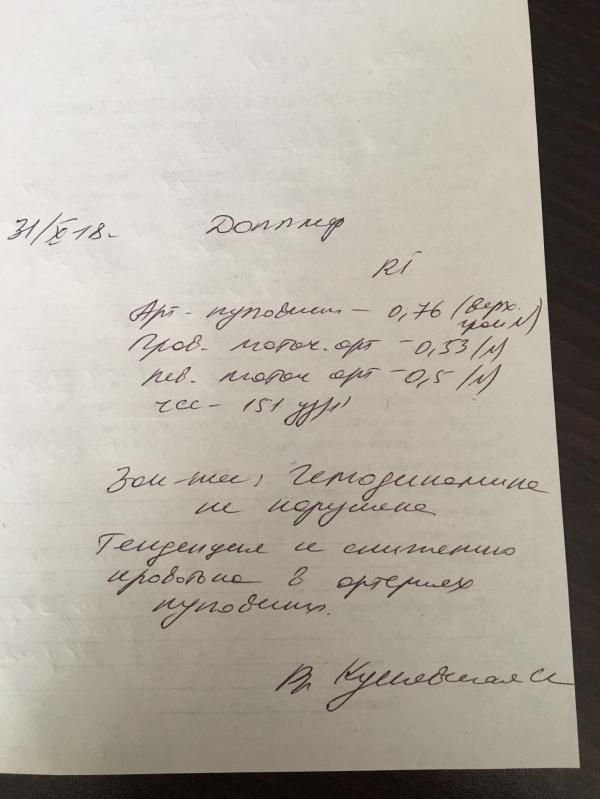 31/X 18. Допплер
RI
Арт. пуповины – 0,76 (верх. гран N)
Прав. маточ. арт – 0,53 (N)
лев. маточ арт – 0,5 (N)
ЧСС – 151 уд/1'
Зак-ние: Гемодинамика
не нарушена
Тенденция к снижению
кровотока в артериях
пуповины.
Вр